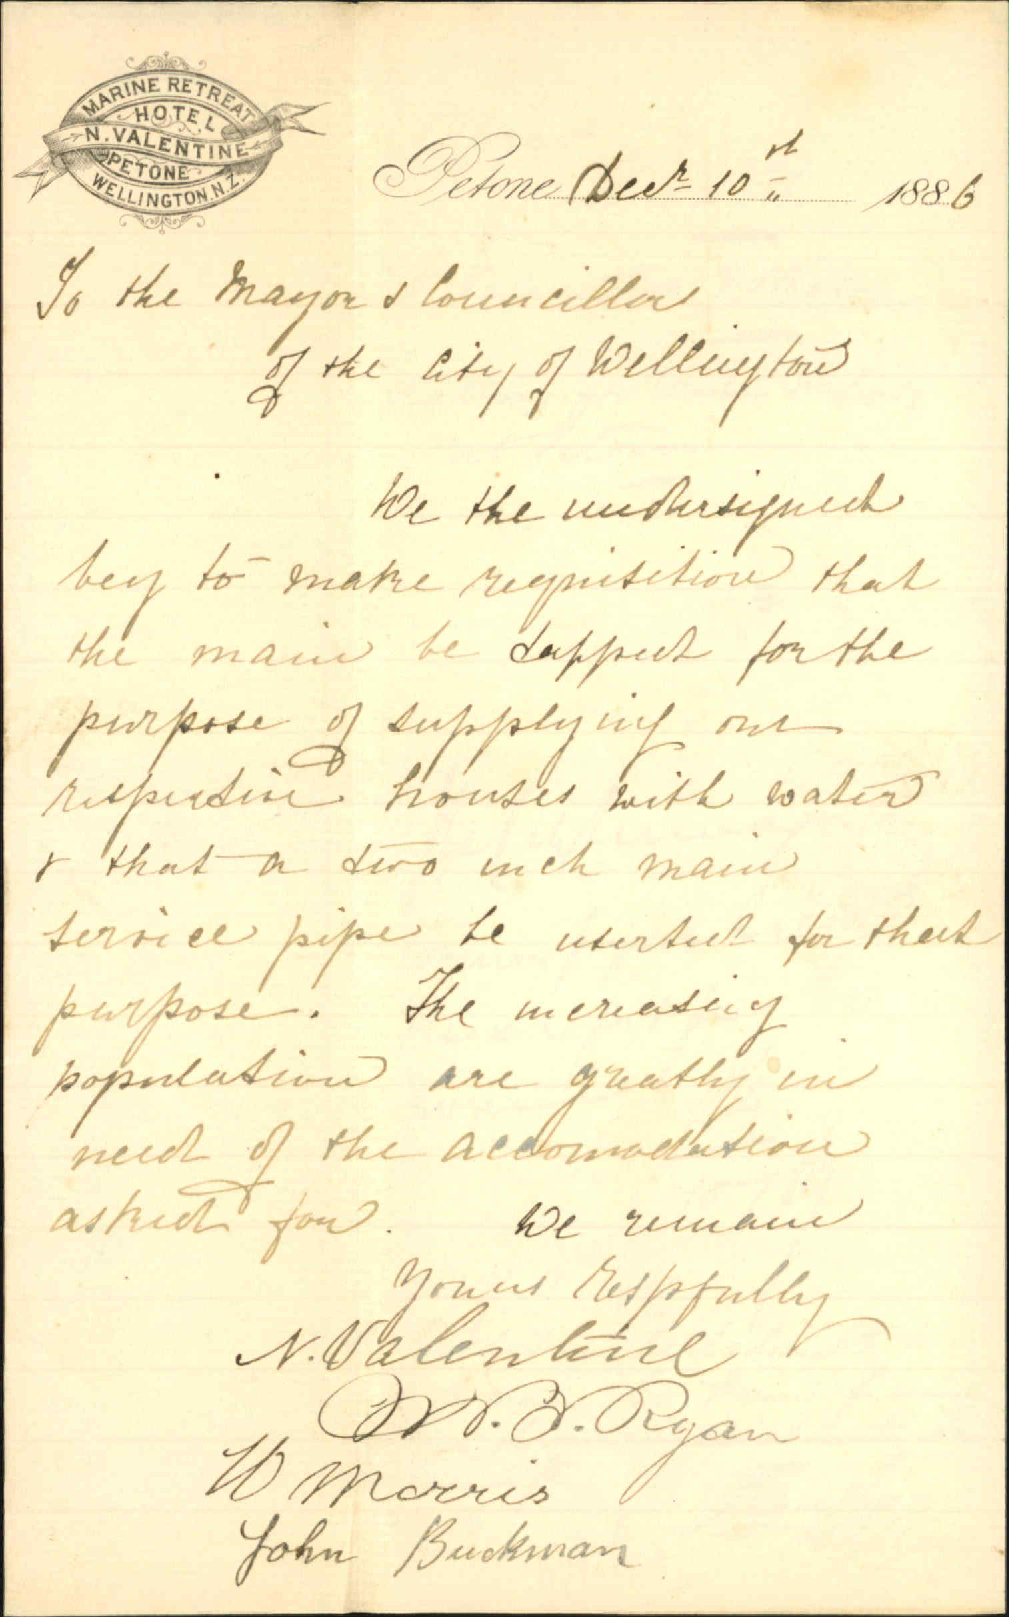 MARINE RETREAT
HOTEL
N. VALENTINE
PETONE
WELLINGTON. N.Z.
Petone Decr 10th 1886
To the Mayor & Councillors
of the City of Wellington
We the undersigned
beg to make requisition that
the main be tapped for the
purpose of supplying our
respective houses with water
& that a two inch main
service pipe be inserted for that
purpose. The increasing
population are greatly in
need of the accomodation
asked for. We remain
Yours respfully
N. Valentine
Ryan
W Morris
John Buckman